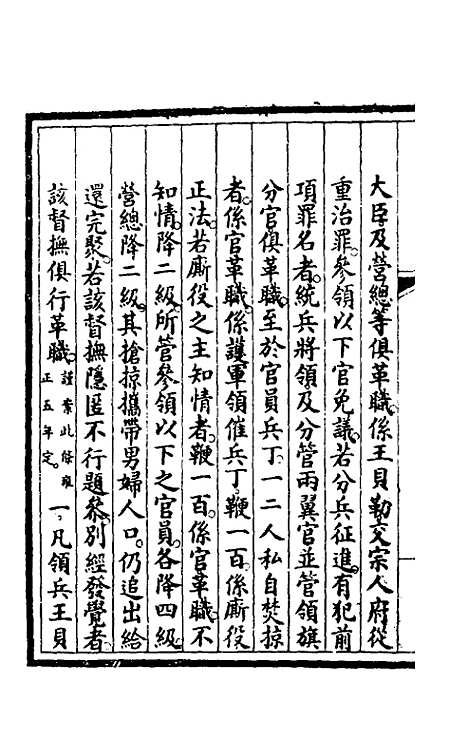 大臣及營總等俱革職係王貝勒交宗人府從
重治罪參領以下官免議若分兵征進有犯前
項罪名者統兵將領及分管兩翼官並管領旗
分官俱革職至於官員兵丁一二人私自焚掠
者係官革職係護軍領催兵丁鞭一百係廝役
正法若廝役之主知情者鞭一百係官革職不
知情降二級所管參領以下之官員各降四級
營總降二級其搶掠攜帶男婦人口仍追出給
還完聚若該督撫隱匿不行題參別經發覺者
該督撫俱行革職謹案此條雍正五年定。一凡領兵王貝